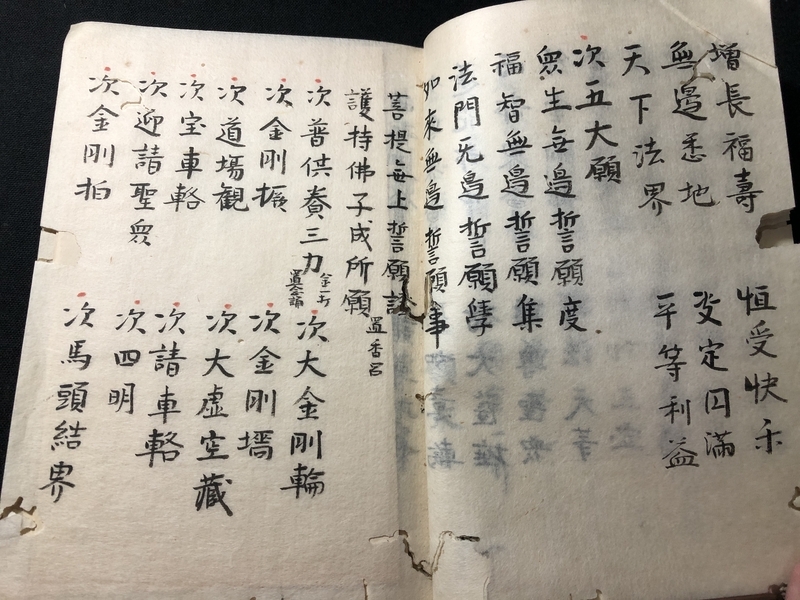 增長福壽 恒受快楽
無邊悉地 决定円滿
天下法界 平等利益
次五大願
衆生無邊誓願度
福智無邊誓願集
法門无邊誓願學
如來無邊誓願事
菩提無上誓願證
護持佛子成所願 置香呂
次普供養三力 次大金剛輪
次金剛橛 次金剛墻
次道場観 次大虚空藏
次宝車輅 次請車輅
次迎請聖衆 次四明
次金剛拍 次馬頭結界